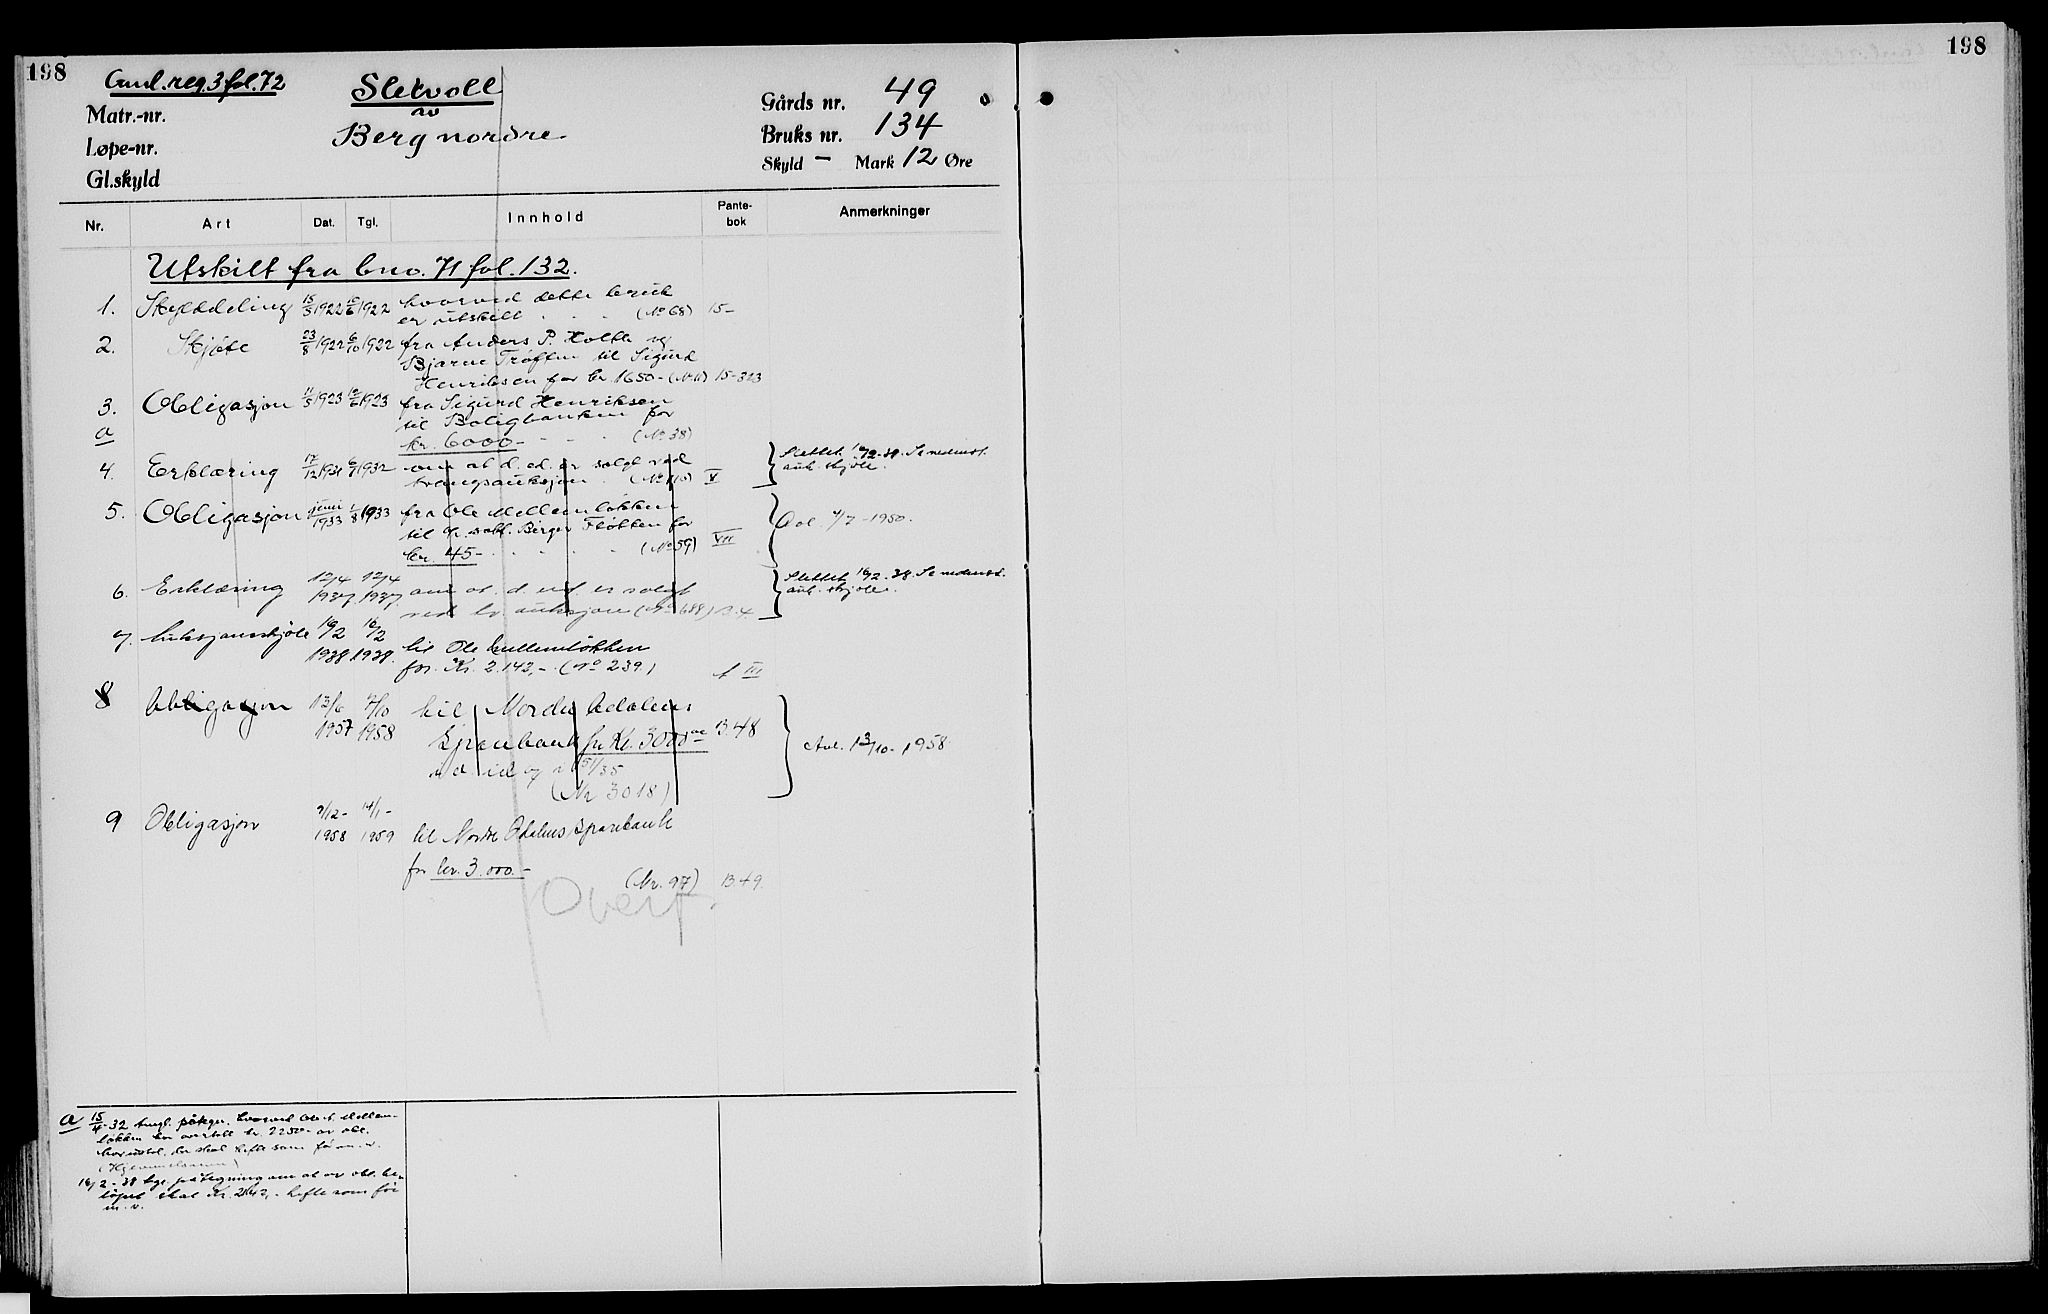 198
198
Gml. reg. 3 fol. 72
Sletvoll
av
Berg nordre
Matr.-nr.
Løpe-nr.
Gl.skyld
Gårds nr. 49
Bruks nr. 134
Skyld – Mark 12 Øre
Nr. Art Dat. Tgl. Innhold Pante-bok Anmerkninger
Utskilt fra bno. 71 fol. 132.
1. Skylddeling 15/5 1922 16/6 1922 hvorved dette bruk
er utskilt . . . (No 68) 15-
2. Skjøte 23/8 1922 6/10 1922 fra Anders P. Holth og
Bjarne Trøften til Sigurd
Henriksen for kr. 1650.- (No 11) 15-323
3. Obligasjon 11/5 1923 12/6 1923 fra Sigurd Henriksen
a til Boligbanken for
kr. 6000.- . . . (No 38)
4. Erklæring 17/12 1931 6/1 1932 om at d. ed. er solgt ved
tvangsauksjon . (No 110) V
Slettet 16/2-38. Se nedenst.
auk. skjøte.
5. Obligasjon juni 1933 1/8 1933 fra Ole Mellemløkken
til Birger Fløtten for
kr. 45.- . . . . (No 59) VII
Avl. 4/7-1950.
6. Erklæring 12/4 1937 12/4 1937. om at d. eid. er solgt
ved tv. auksjon (No 688) B. 4.
Slettet 16/2-38. Se nedenst.
auk. skjøte.
7. Auksjonsskjøte 16/2 1938 16/2 1938. til Ole Mellemløkken
for Kr. 2.142,- (No 239.) A III
8 Obligasjon 13/6 1957 7/10 1958 til Nordre Odalens
Sparebank for Kr. 3000 B 48
(Nr 3018)
Avl. 13/10-1958
9 Obligasjon 9/12- 1958 14/1- 1959 til Nordre Odalens Sparebank
for kr. 3.000.-
(Nr. 97) B 49.
Overf.
a 15/4-32 tingl. påtegn. hvorved Ole Mellem-
løkken har overtatt kr. 2250.- av obl.
hovedstol, der skal hefte som før m. v.
(Hjemmelsmann)
16/2-38 tgl. påtegning om at av obl. be-
løpet skal Kr. 2142,- hefte som før
m. v.